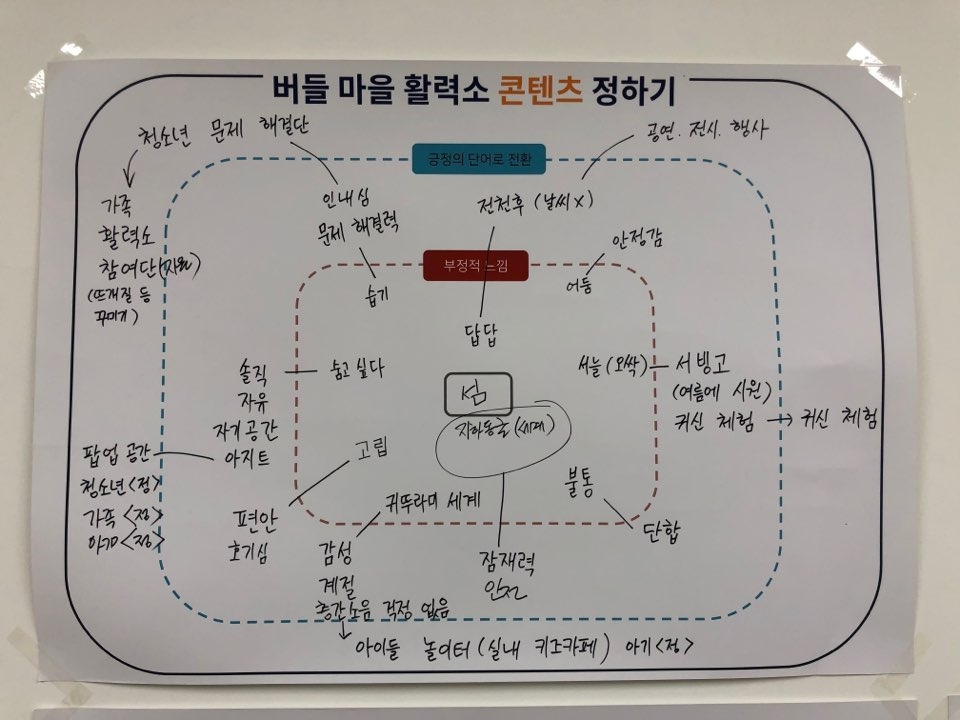 버들 마을 활력소 콘텐츠 정하기
청소년 문제 해결단
공연. 전시. 행사
긍정의 단어로 전환
가족
활력소
참여단
(뜨개질 등
꾸미기)
인내심
문제 해결력
전천후 (날씨x)
안정감
부정적 느낌
습기
어둠
답답
솔직
자유
자기공간
아지트
숨고 싶다
서늘 (오싹)
서빙고
(여름에 시원)
귀신 체험 → 귀신 체험
섬
지하동굴 (세계)
팝업 공간
청소년 <정>
가족 <정>
아기 <정>
고립
편안
호기심
귀뚜라미 세계
감성
계절
층간소음 걱정 없음
불통
단합
잠재력
안전
아이들 놀이터 (실내 키즈카페) 아기 <정>